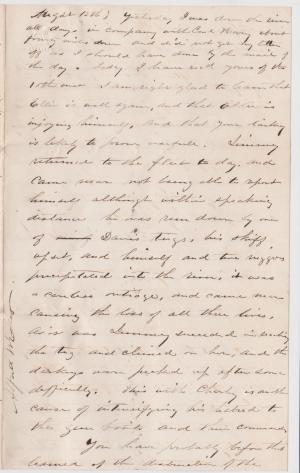 August 12th) Yesterday I was down the river
all day, in company with Com
down and did not get my letter
off as I should have done by the mail of
the day. Today I have recd yours of the
10th inst. I am right glad to learn that
Ellie is well again, and that Eddie is
enjoying himself, and that your
is likely to prove useful. Jimmy
returned to the fleet to day, and
came near not being able to report
himself although within speaking
distance. he was run down by one
of Davis' tugs, his skiff
upset, and himself and two niggers
precipitated into the river, it was
a careless outrage, and came near
causing the loss of all three lives,
As it was Jimmy succeeded in
the tug and climbed on her, and the
darkeys were picked up after some
difficulty. This with Charly is
cause of intensifying his hatred to
the gun boats and their commander
You have probably before this
learned of the destruction of the